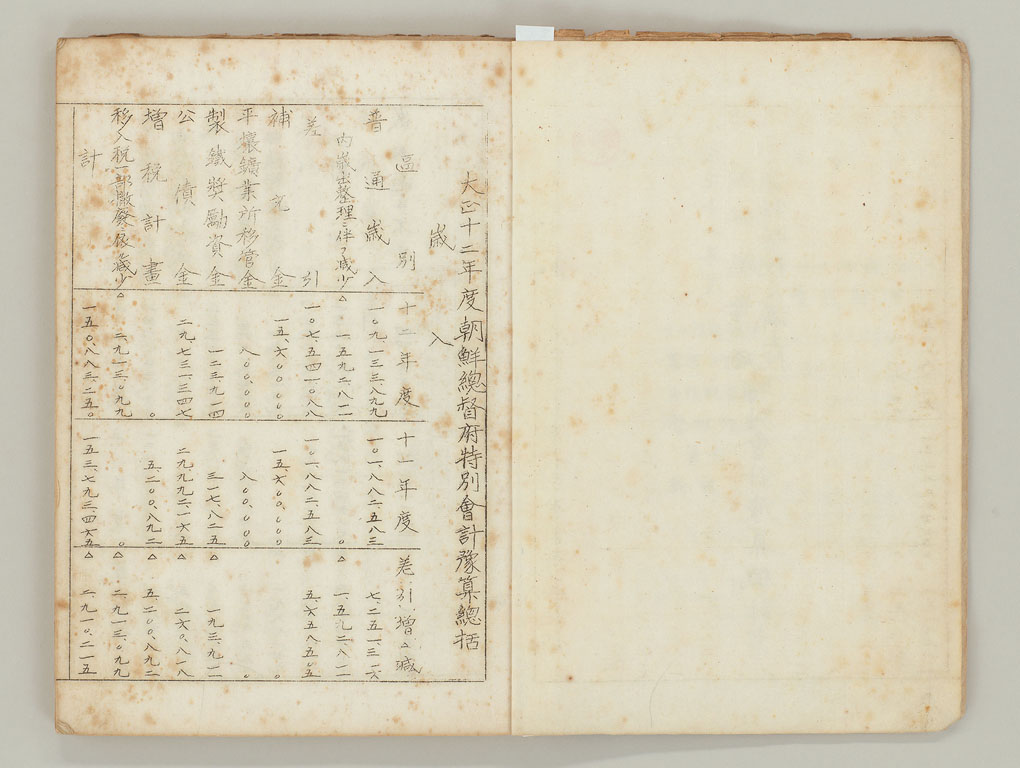 大正十二年度朝鮮總督府特別會計豫算總括
歳入
區別 十二年度 十一年度 差引增△減
普通歳入 一〇九、一三三、八九九 一〇一、八八二、五八三 七、二五一、三一六
內歳出整理ニ伴フ減少 △一、五九二、八一一 〇 △一、五九二、八一一
差引 一〇七、五四一、〇八八 一〇一、八八二、五八三 五、六五八、五〇五
補充金 一五、六〇〇、〇〇〇 一五、六〇〇、〇〇〇 〇
平壤鑛業所移管金 八〇〇、〇〇〇 八〇〇、〇〇〇 〇
製鐵奬勵資金 一二三、九一四 三一七、八二五 △一九三、九一一
公債金 二九、七三一、三四七 二九、九九二、一六五 △二六〇、八一八
增税計畫 〇 五、二〇〇、八九二 △五、二〇〇、八九二
移入税一部撤廢ニ依ル減少 △二、九一三、〇九九 〇 △二、九一三、〇九九
計 一五〇、八八三、二五〇 一五三、七九三、四六五 △二、九一〇、二一五